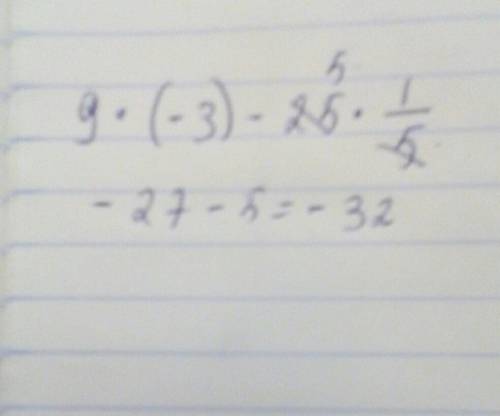 5
9 · (-3) - 25 · 1/5
- 27 - 5 = - 32